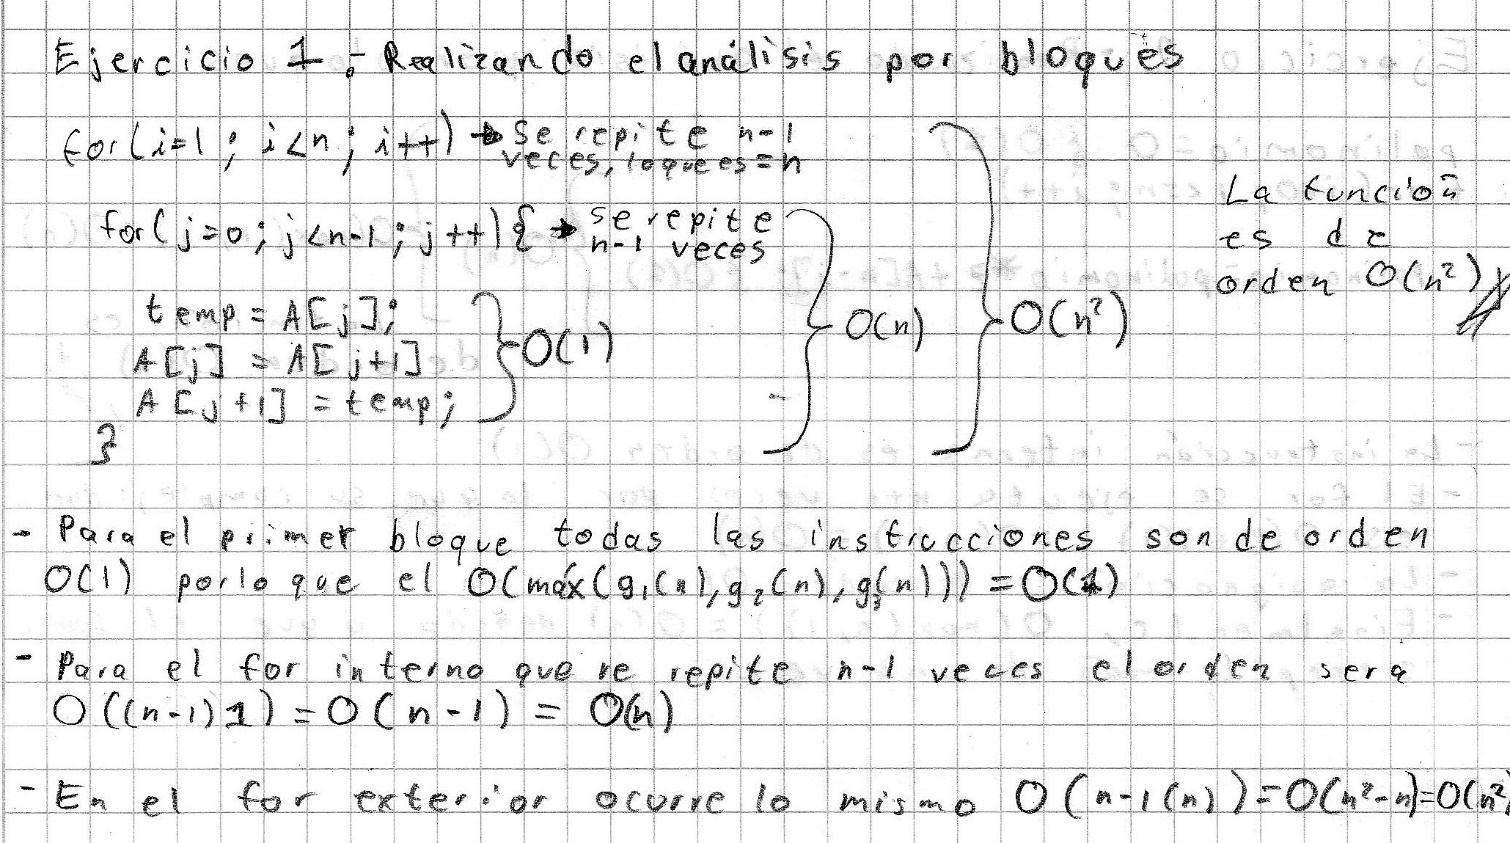 Ejercicio 1.- Realizando el análisis por bloques
for(i=1; i<n; i++) → Se repite n-1
veces, lo que es = n
for(j=0; j<n-1; j++){ → se repite
n-1 veces
temp = A[j];
A[j] = A[j+1]
A[j+1] = temp;
}
O(1)
O(n)
O(n²)
La función
es de
orden O(n²)
- Para el primer bloque todas las instrucciones son de orden
O(1) por lo que el O(máx(g₁(n), g₂(n), g₃(n))) = O(1)
- Para el for interno que se repite n-1 veces el orden será
O((n-1)1) = O(n-1) = O(n)
- En el for exterior ocurre lo mismo O(n-1(n)) = O(n²-n) = O(n²)